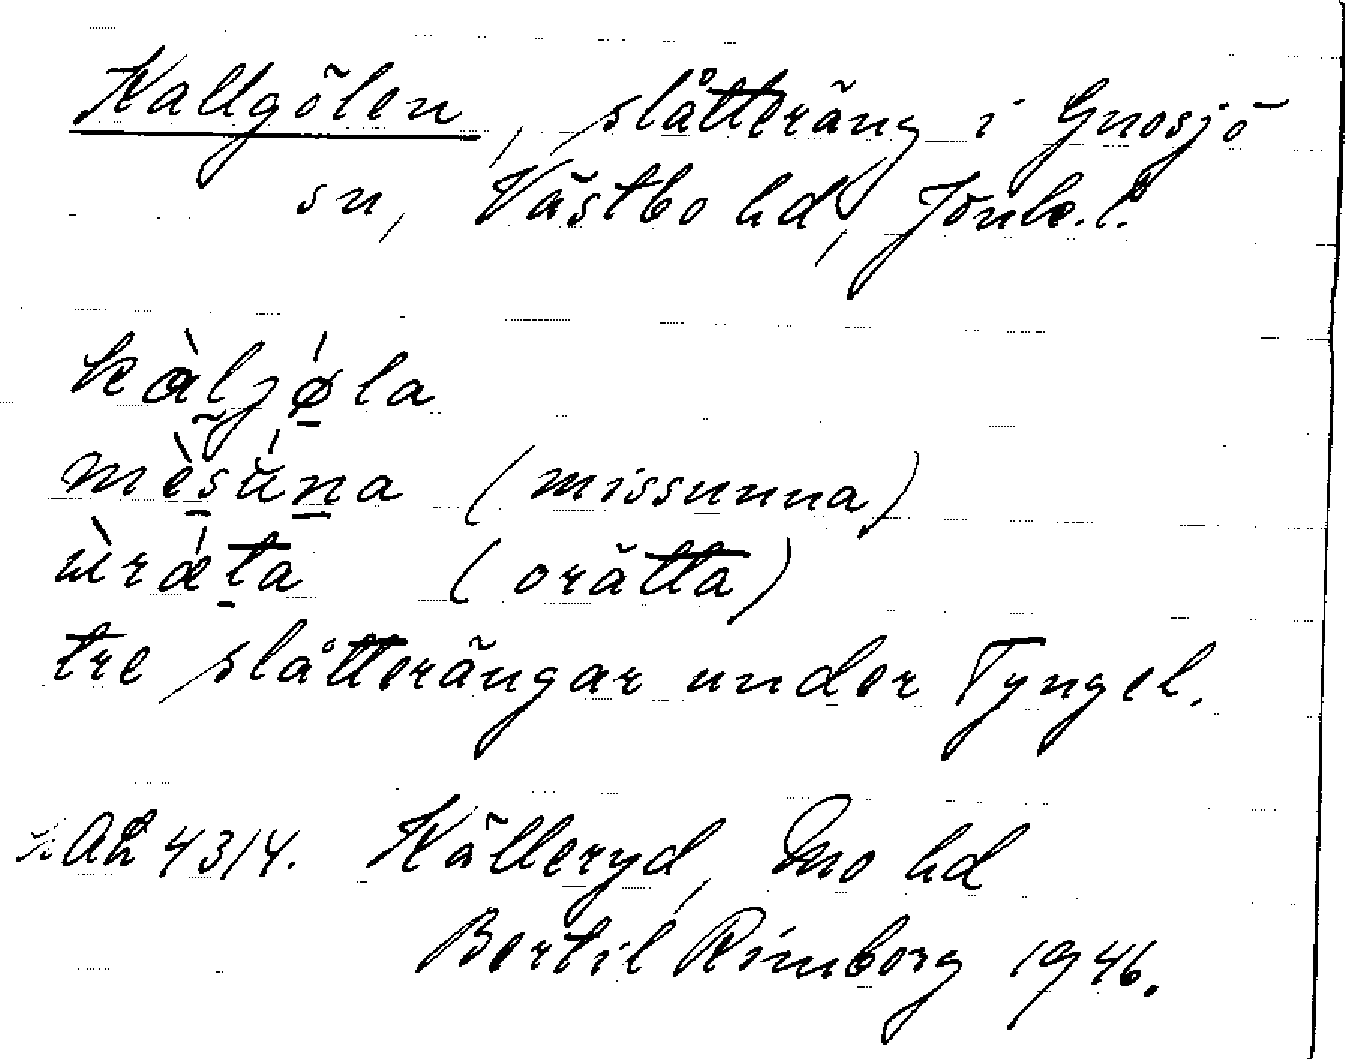 Kallgölen, slåtteräng i Gnosjö
sn, Västbo hd, Jönk.l.
kàljǿ̠la
mѐs̠ún̠a (missunna)
ùrǽt̠a (orätta)
tre slåtterängar under Tyngel.
AL 4314. Källeryd, Mo hd
Bertil Rimborg 1946.